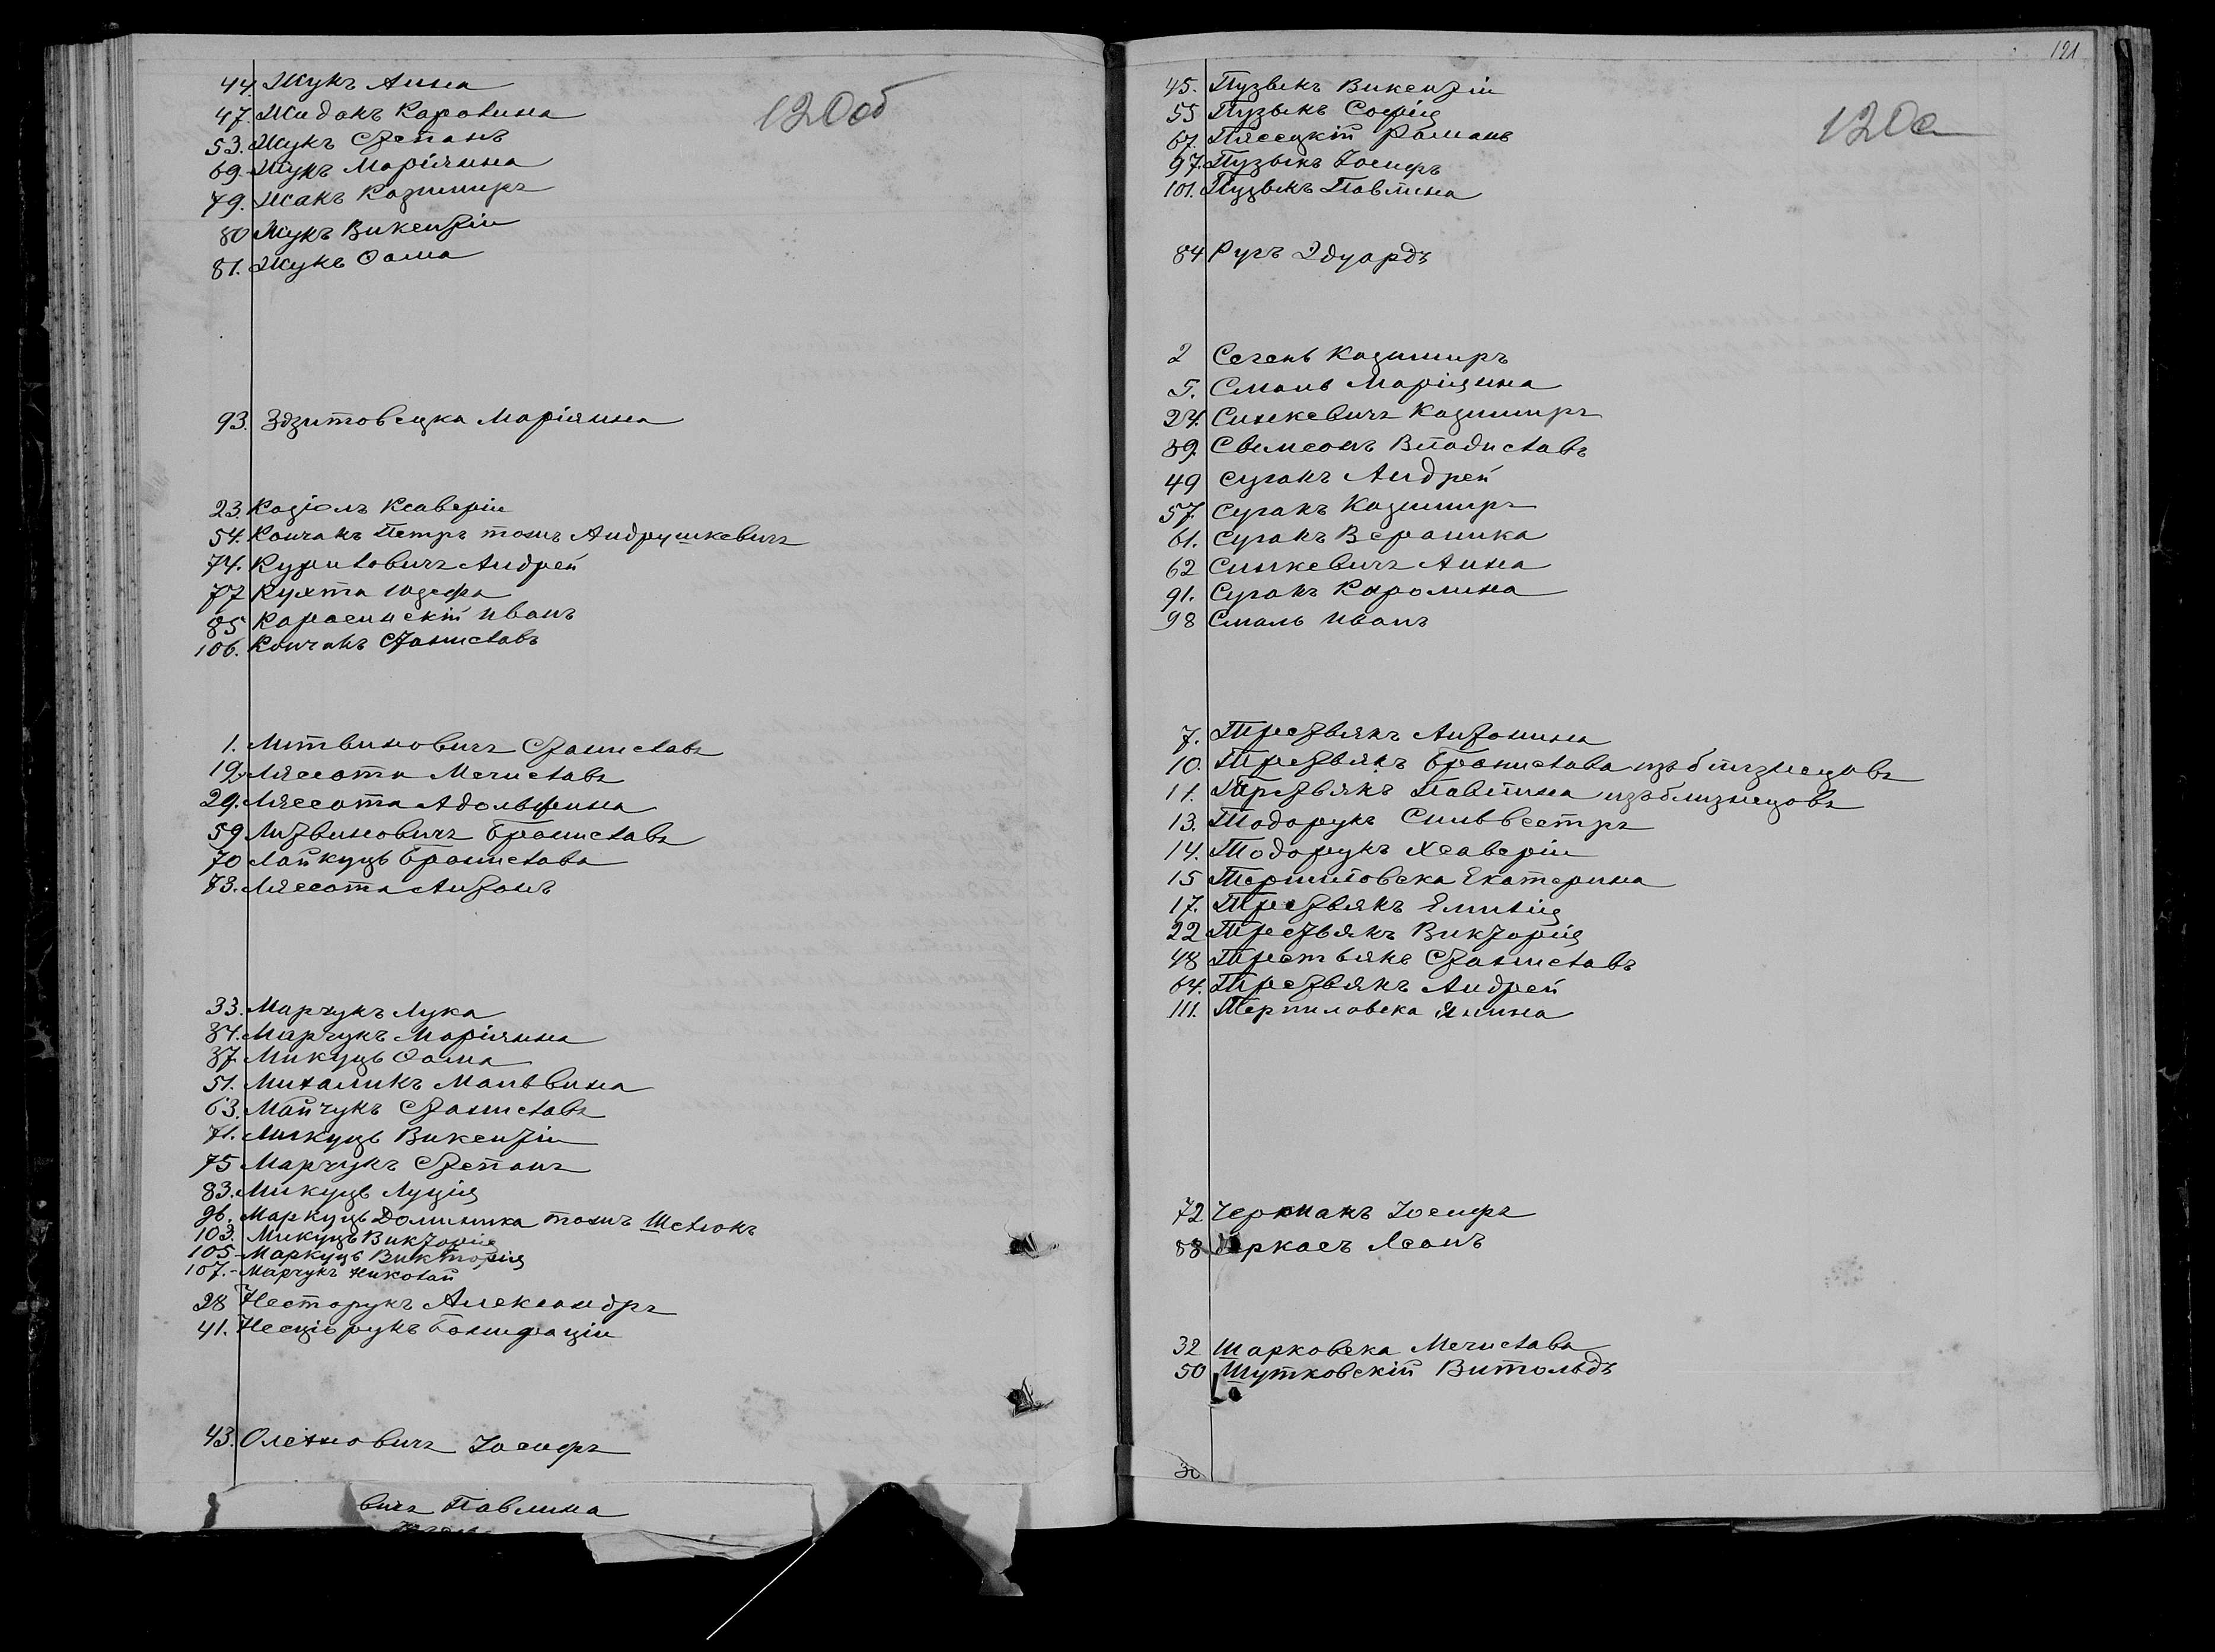 120об
44. Жукъ Анна
47. Жидакъ Каролина
53. Жукъ Степанъ
69. Жукъ Маріянна
79. Жакъ Казимиръ
80 Жукъ Викентій
81. Жукъ Ѳома
93. Здзитовецка Маріянна
23. Козіолъ Ксаверій
54. Кончакъ Петръ тожъ Андрушкевичъ
74. Куриловичъ Андрей
77 Кухта Юзефа
85 Карасинскій Иванъ
106. Кончакъ Станиславъ
1. Литвиновичъ Станиславъ
19. Лясота Мечиславъ
29. Лясота Адольфина
59 Литвиновичъ Брониславъ
70 Лайкуць Бронислава
73. Лясота Антонъ
33. Марчукъ Лука
34. Марчукъ Маріянна
37 Микуць Ѳома
51. Михаликъ Мальвина
63. Майчукъ Станиславъ
71. Микуць Викентій
75 Марчукъ Степанъ
83. Микуць Луція
96. Маркуць Доминика тожъ Шелюкъ
103. Микуць Викторія
105 Маркуць Викторія
107. Марчукъ Николай
28 Несторукъ Александръ
41. Несцірукъ Бонифацій
43. Олехновичъ Іосифъ
вичъ Павлина
121
120а
45. Пузыкъ Викентій
55 Пузыкъ Софія
67. Пясецкій Романъ
97. Пузыкъ Іосифъ
101. Пузыкъ Павлина
84 Ругъ Эдуардъ
2 Сегень Казимиръ
5. Смаль Маріянна
24. Синкевичъ Казимиръ
39. Свимсонъ Владиславъ
49 Сугакъ Андрей
57. Сугакъ Казимиръ
61. Сугакъ Вероника
62 Синкевичъ Анна
91. Сугакъ Каролина
98 Смаль Иванъ
7. Трестьякъ Антонина
10. Трестьякъ Бронислава изъ близнецовъ
11. Трестьякъ Павлина изъ близнецовъ
13. Тодорукъ Сильвестръ
14. Тодорукъ Ксаверій
15 Терпиловска Екатерина
17. Трестьякъ Емилія
22 Трестьякъ Викторія
48 Трестьякъ Станиславъ
64. Трестьякъ Андрей
111. Терпиловска Янина
72 Черманъ Іосифъ
88 Черкасъ Ясонъ
32 Шарковска Мечислава
50 Шутковскій Витольдъ